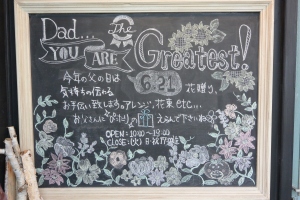 Dad... The
YOU ARE Greatest!
今年の父の日は 6.21 花贈り。
気持ちの伝わる
お手伝い致します。アレンジ、花束 etc...
お父さんに"ぴったり"の えらんで下さいね
OPEN: 10:00~19:00
CLOSE: (火)